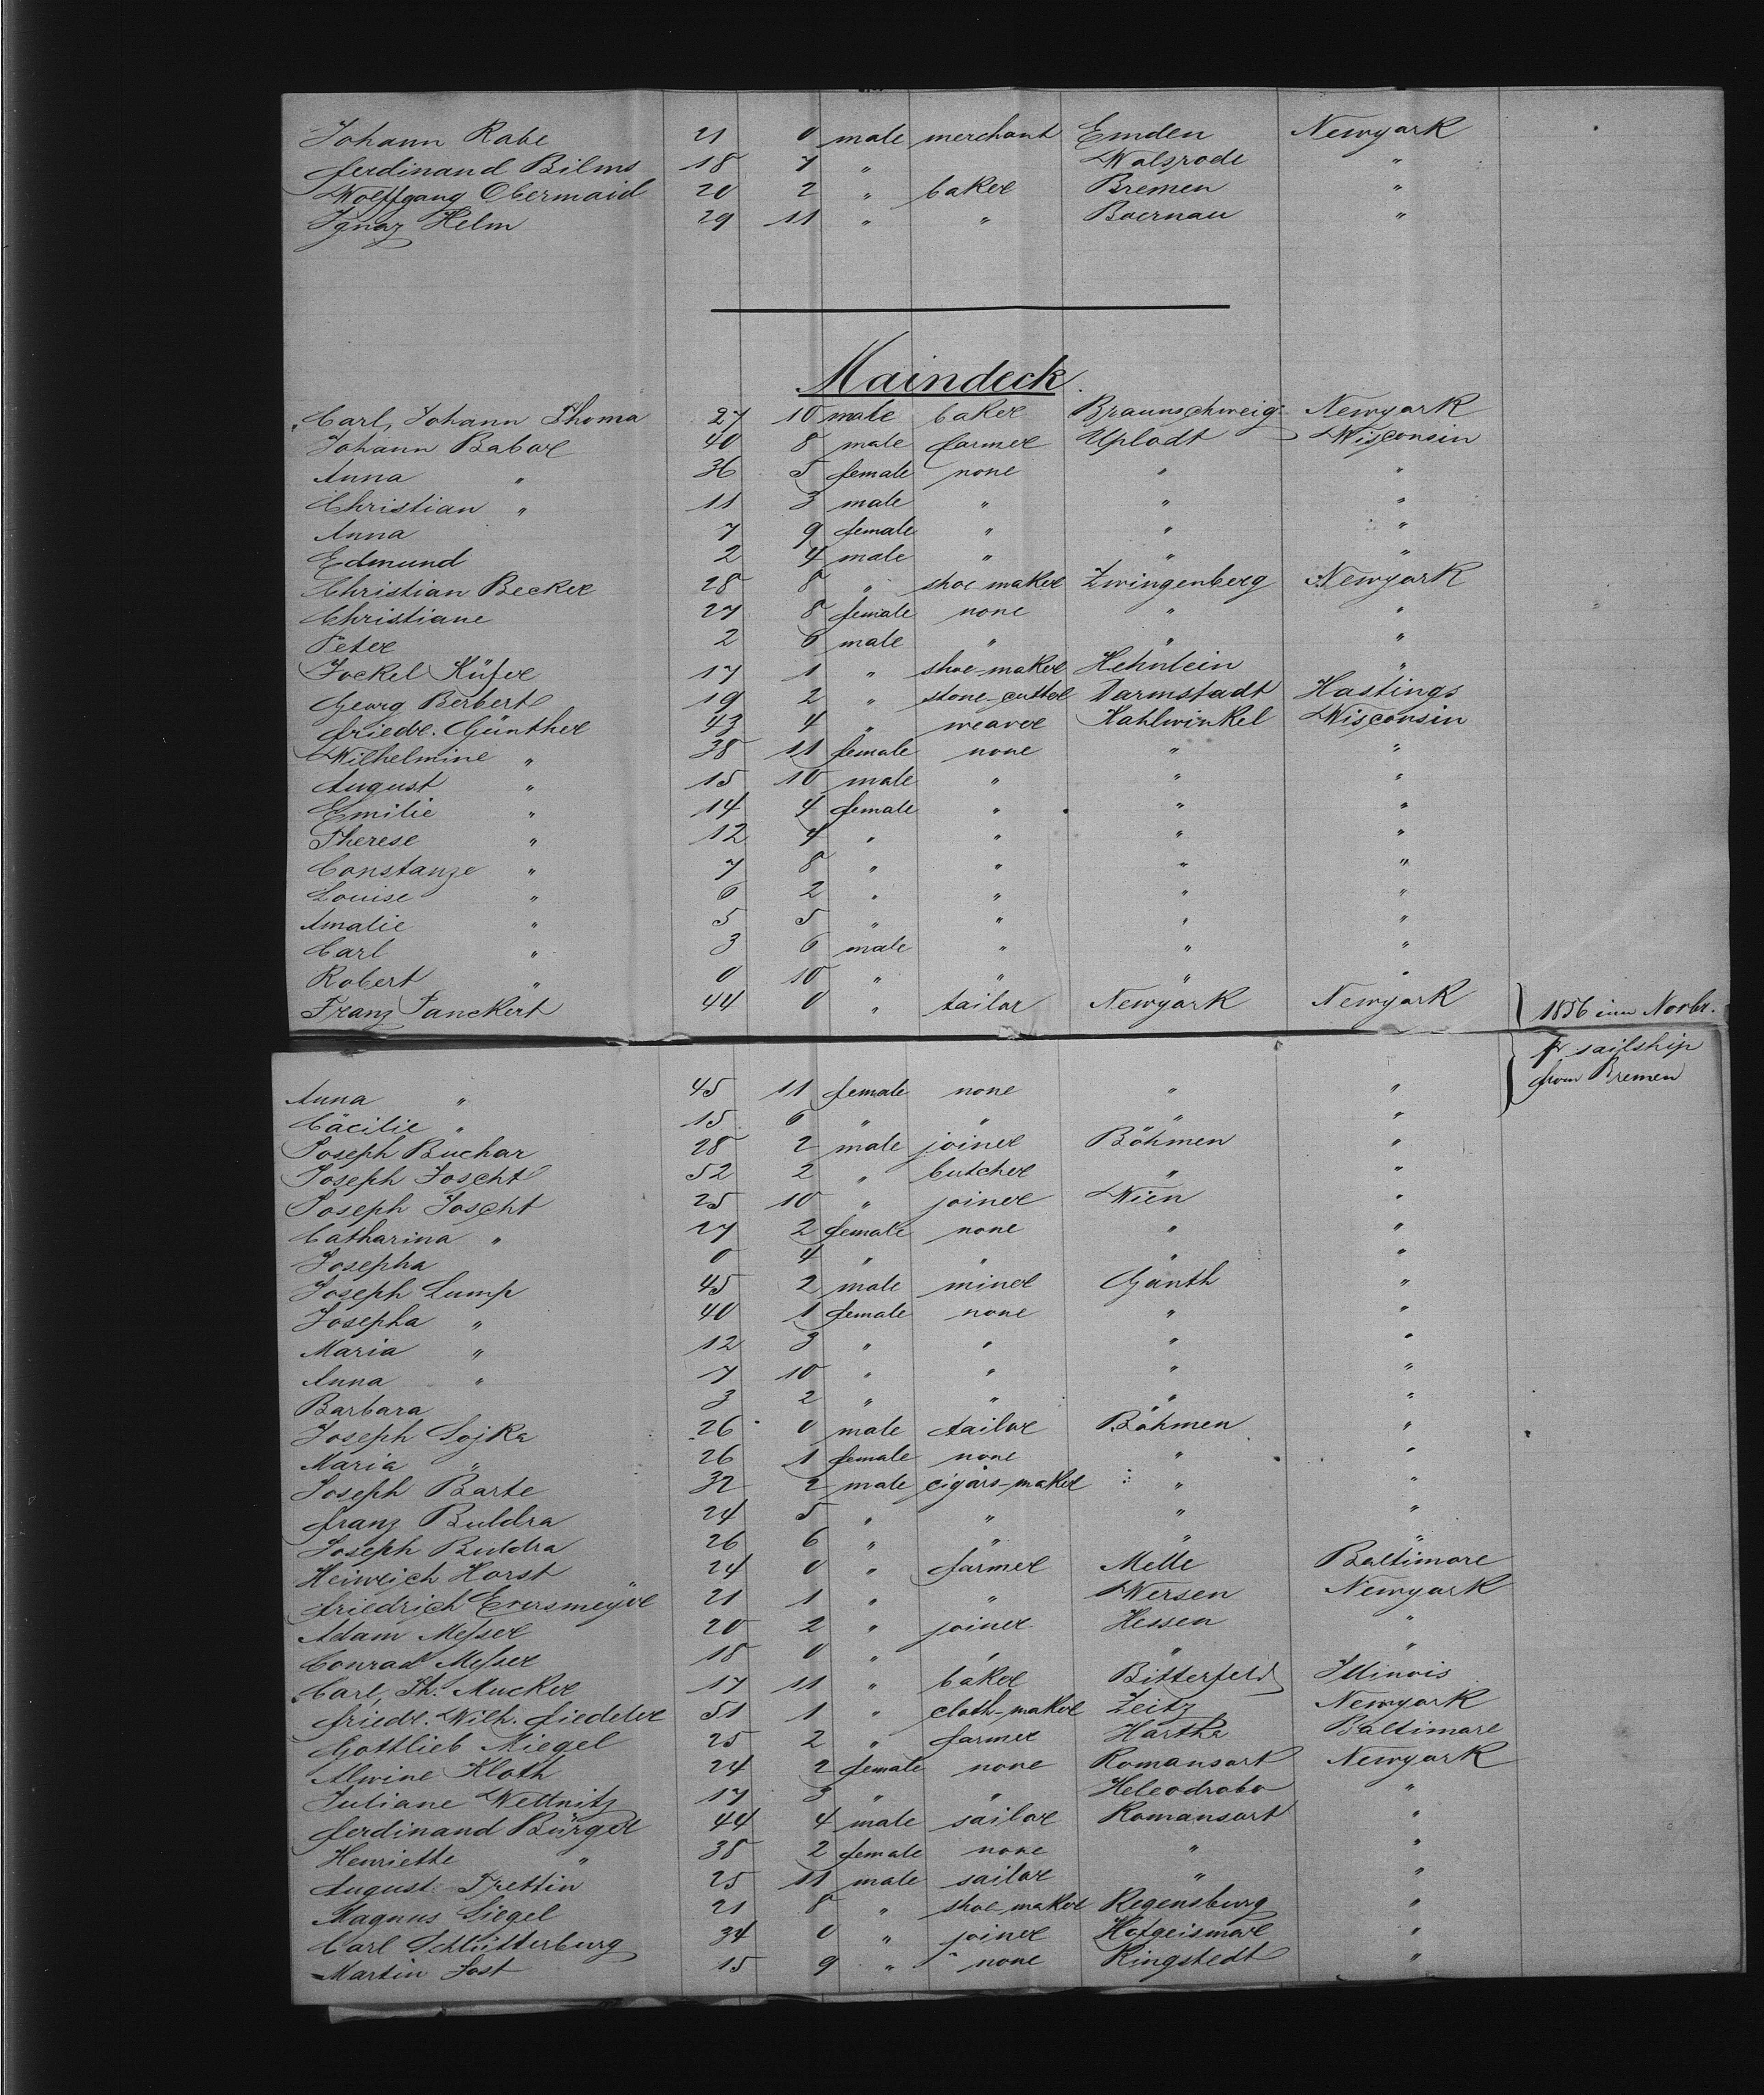 Johann Rabe 21 0 male merchant Emden Newyork
Ferdinand Bilms 18 7 " Walsrode "
Wolffgang Obermaid 20 2 " baker Bremen "
Ignaz Helm 29 11 " " Baernau "
Maindeck.
Carl, Johann Thoma 27 10 male baker Braunschweig Newyork
Johann Babor 40 8 male farmer Upladt Wisconsin
Anna " 36 5 female none " "
Christian " 11 3 male " " "
Anna 7 9 female " " "
Edmund 2 4 male " " "
Christian Becker 28 8 " shoe maker Zwingenberg Newyork
Christiane 27 8 female none " "
Peter 2 6 male " " "
Jockel Küfer 17 1 " shoe-maker Hehnlein "
Georg Berbert 19 2 " stone-cutter Darmstadt Hastings
Friedr. Günther 43 4 " weaver Kahlwinkel Wisconsin
Wilhelmine " 38 11 female none " "
August " 15 10 male " " "
Emilie " 14 4 female " " "
Therese " 12 4 " " " "
Constanze " 7 8 " " " "
Louise " 6 2 " " " "
Amalie " 5 5 " " " "
Carl " 3 6 male " " "
Robert " 0 10 " " " "
Franz Panckert 44 0 " tailor Newyork Newyork 1856 im Novbr.
pr sailship
Anna " 45 11 female none " " from Bremen
Cäcilie " 15 6 " " " "
Joseph Buchar 28 2 male joiner Böhmen "
Joseph Joscht 52 2 " butcher " "
Joseph Joscht 25 10 " joiner Wien "
Catharina " 27 2 female none " "
Josepha 0 4 " " " "
Joseph Lump 45 2 male miner Ganth "
Josepha " 40 1 female none " "
Maria " 12 3 " " " "
Anna " 7 10 " " " "
Barbara 3 2 " " " "
Joseph Sojka 26 0 male tailor Böhmen "
Maria " 26 1 female none " "
Joseph Barte 32 2 male cigars-maker " "
Franz Buldra 24 5 " " " "
Joseph Buldra 26 6 " " " "
Heinrich Horst 24 0 " farmer Melle Baltimore
Friedrich Eversmeyer 21 1 " " Wersen Newyork
Adam Messer 20 2 " joiner Hessen "
Conrad Messer 18 0 " " " "
Carl, Th. Mucker 17 11 " baker Bitterfeld Illinois
Friedr. Wilh. Fiedeler 51 1 " cloth-maker Zeitz Newyork
Gottlieb Riegel 25 2 " farmer Hartha Baltimore
Alwine Kloth 24 2 female none Romansart Newyork
Juliane Wettnitz 17 3 " " Heleodrobo "
Ferdinand Bürger 44 4 male sailor Romansart "
Henriette " 38 2 female none " "
August Trettin 25 11 male sailor " "
Magnus Siegel 21 8 " shoe maker Regensburg "
Carl Schlütterburg 34 0 " joiner Hofgeismar "
Martin Jost 15 9 " none Ringstedt "